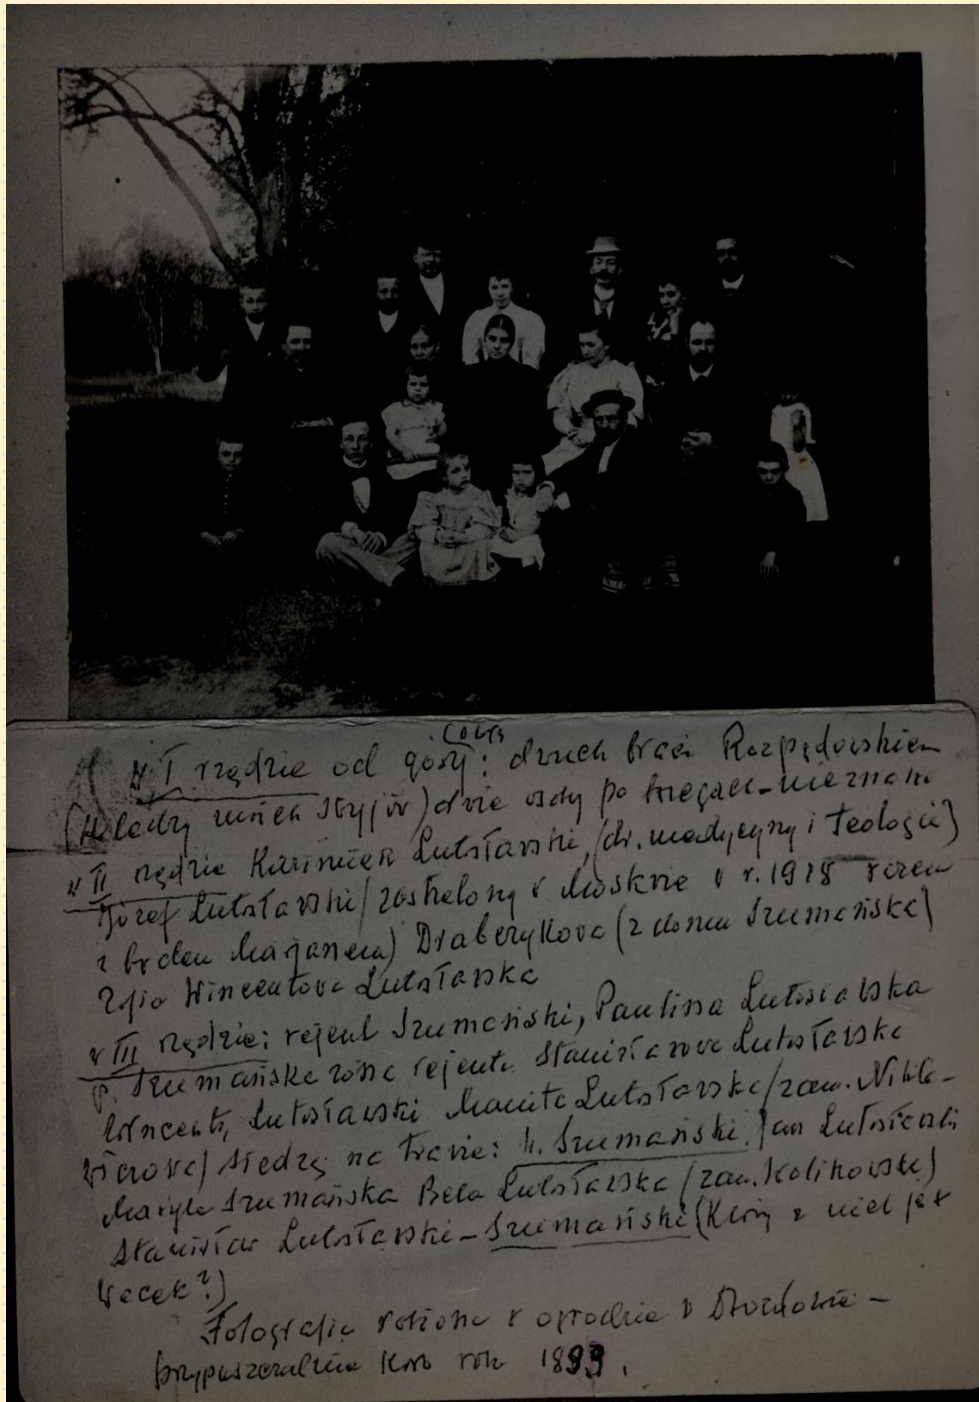 w I rzędzie od góry: dwuch braci Rozpędowskich
(koledzy moich stryjów) dwie osoby po bregach - nieznani
w II rzędzie Kazimierz Lutosławski, (dr. medycyny i teologii)
Józef Lutosławski (zastrzelony w Moskwie w r. 1918 razem
z bratem Marjanem) Draberykowa (z domu Szumańska)
Zofia Wincentowa Lutosławska
w III rzędzie: rejent Szumański, Paulina Lutosławska
p. Szumańska żona rejenta Stanisławowa Lutosławska
Wincenty Lutosławski Manita Lutosławska (zam. Nikle-
wiczowa) siedzą na trawie: W. Szumański, Jan Lutosławski
Maryla Szumańska Bela Lutosławska (zam. Kolikowska)
Stanisław Lutosławski - Szumański (Który z nich jest
Wacek?)
Fotografia robiona w ogrodzie w Drozdowie -
przypuszczalnie rok 1893.